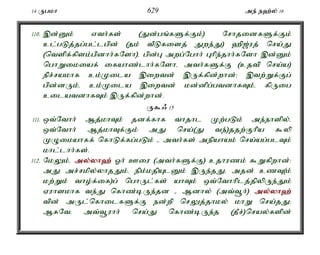 14 ருபமா 629 அந் நஹ்ல் 16
110. இன்னும் எவர்கள் (துன்பங்களுக்கும்) சோதனைகளுக்கும்
உட்படுத்தப்பட்டபின் (தம் வீடுகளைத் துறந்து) ஹிஜ்ரத் செய்து
(வெளிக்கிளம்பினார்களோ) பின்பு அறப்போர் புரிந்தார்களோ இன்னும்
பொறுமையைக் கையாண்டார்களோ, அவர்களுக்கு (உதவி செய்ய)
நிச்சயமாக உம்முடைய இறைவன் இருக்கின்றான்; இவற்றுக்குப்
பின்னரும், உம்முடைய இறைவன் மன்னிப்பவனாகவும், கிருபை
உடையவனாகவும் இருக்கின்றான்.
ருகூஃ 15
111. ஒவ்வோர் ஆத்மாவும் தனக்காக வாதாட முற்படும் அந்நாளில்,
ஒவ்வோர் ஆத்மாவுக்கும் அது செய்(து வந்)ததற்குரிய கூலி
முழுமையாகக் கொடுக்கப்படும் - அவர்கள் அநியாயம் செய்யப்படவும்
மாட்டார்கள்.
112. மேலும், அல்லாஹ் ஓர் ஊரை (அவர்களுக்கு) உதாரணம் கூறுகிறான்:
அது அச்சமில்லாததும், நிம்மதியுடனும் இருந்தது, அதன் உணவும்
மற்றும் வாழ்க்கை)ப் பொருட்கள் யாவும் ஒவ்வோரிடத்திலிருந்தும்
ஏராளமாக வந்து கொண்டிருந்தன , ஆனால் (அவ்வூர்) அல்லாஹ்
வின் அருட்கொடைகளுக்கு நன்றி செலுத்தாமல் மாறு செய்தது,
ஆகவே, அவ்வூரார் செய்து கொண்டிருந்த (தீச்)செயல்களின்